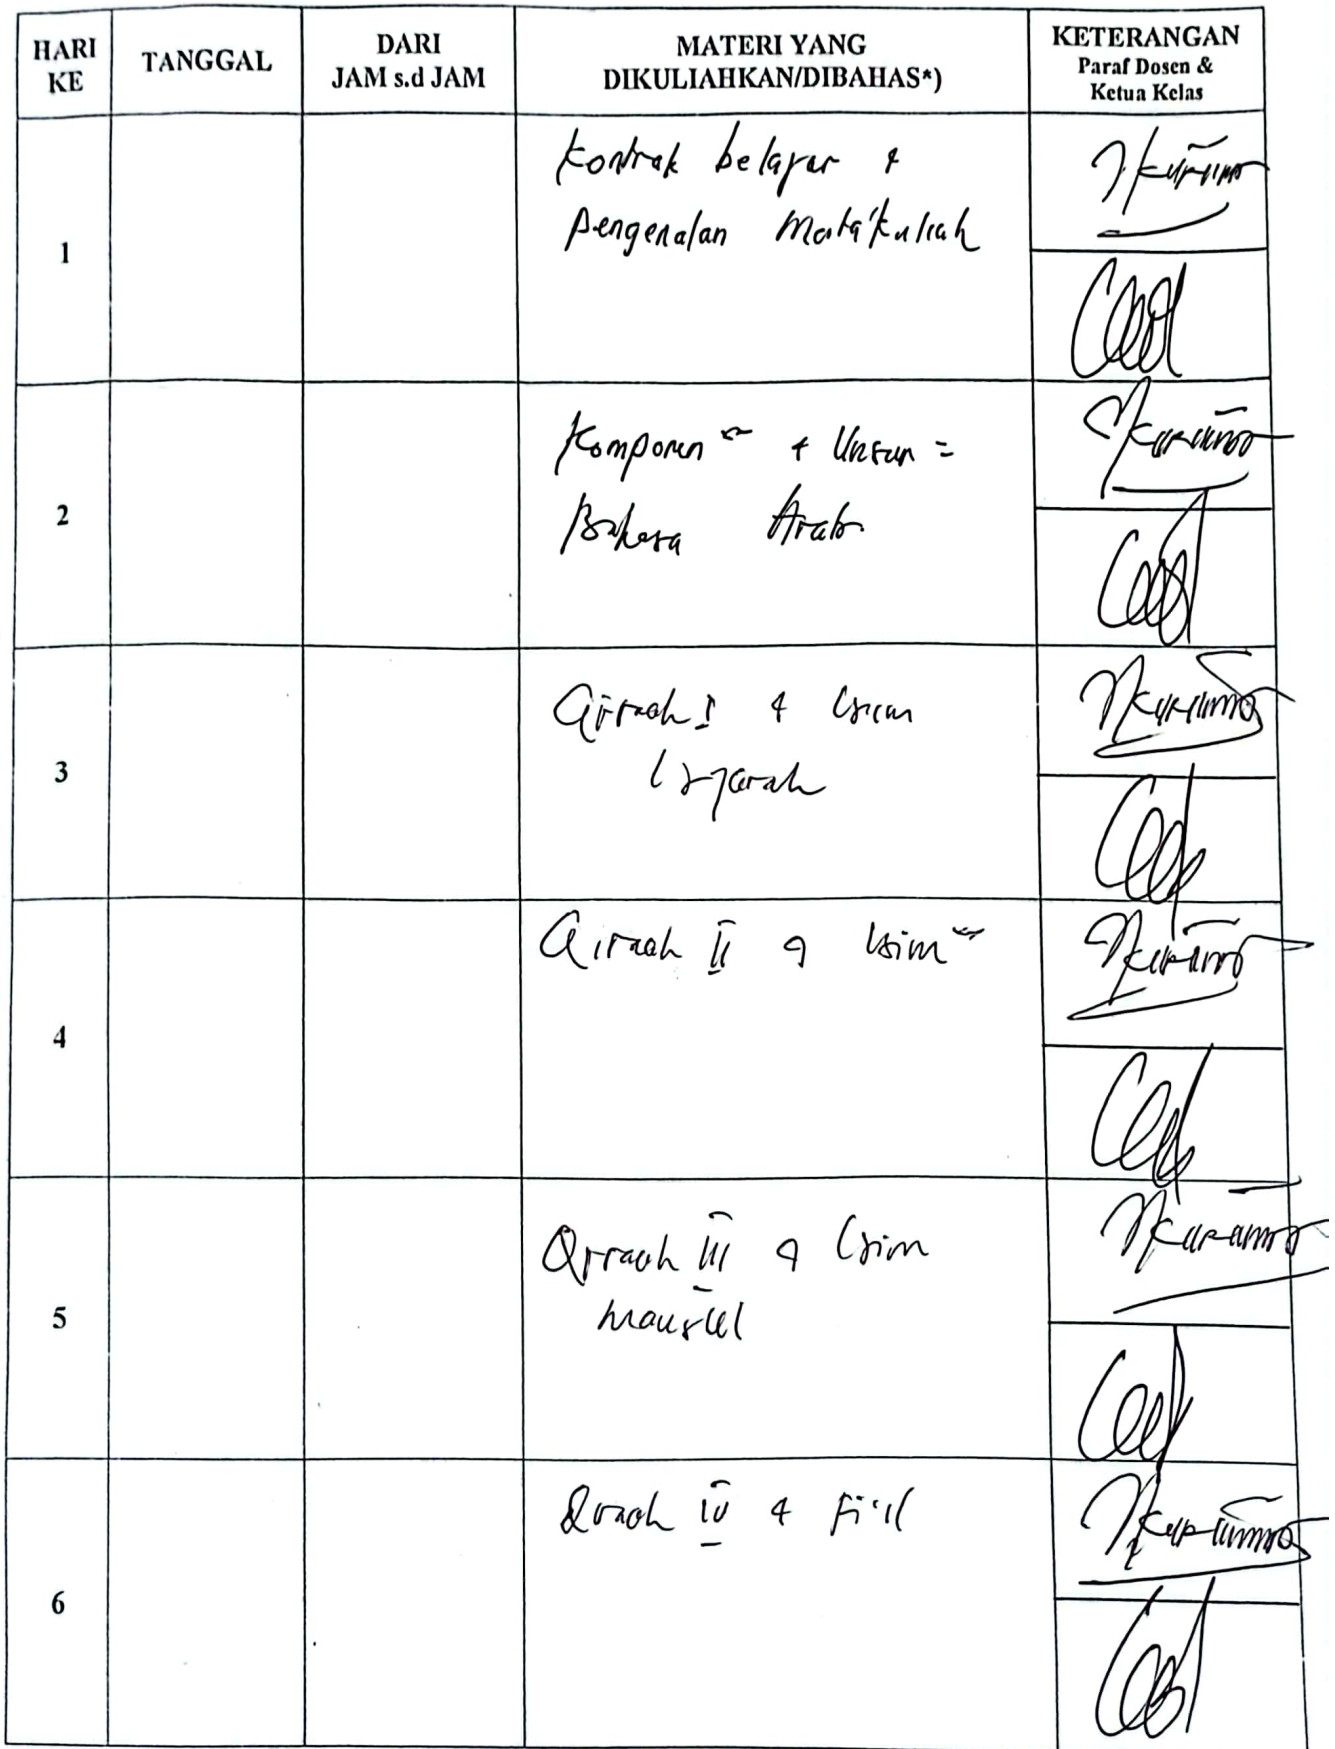 HARI KE
TANGGAL
DARI
JAM s.d JAM
MATERI YANG
DIKULIAHKAN/DIBAHAS*)
KETERANGAN
Paraf Dosen &
Ketua Kelas
1
Kontrak belajar &
pengenalan Mata kuliah
2
Komponen & Unsur =
Bahasa Arab
3
Qiraah I & Isim
Isyarah
4
Qiraah II & Isim
5
Qiraah III & Isim
mausul
6
Qiraah IV & Fi'il